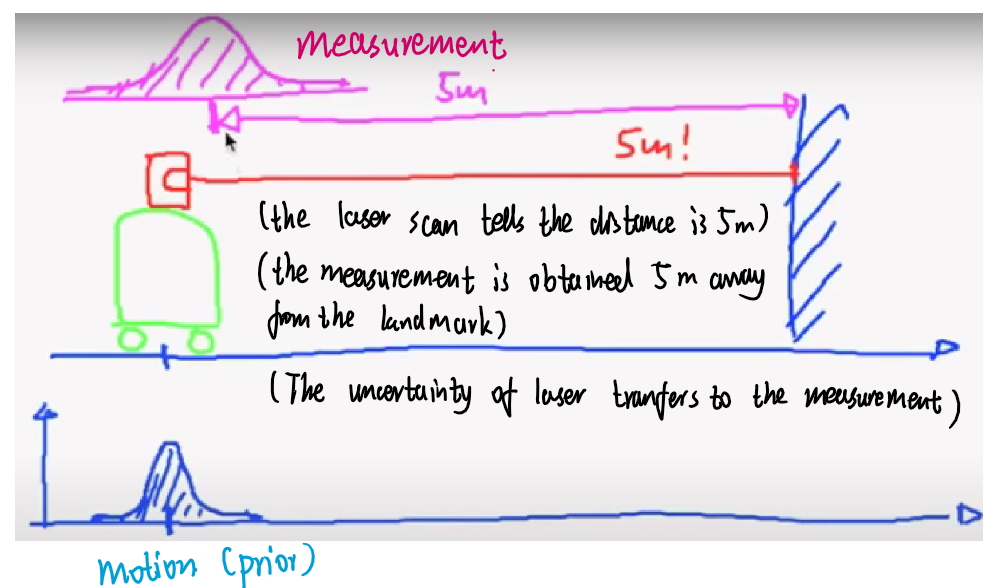 measurement
5m
5m!
(the laser scan tells the distance is 5m)
(the measurement is obtained 5m away
from the landmark)
(The uncertainty of laser transfers to the measurement)
motion (prior)